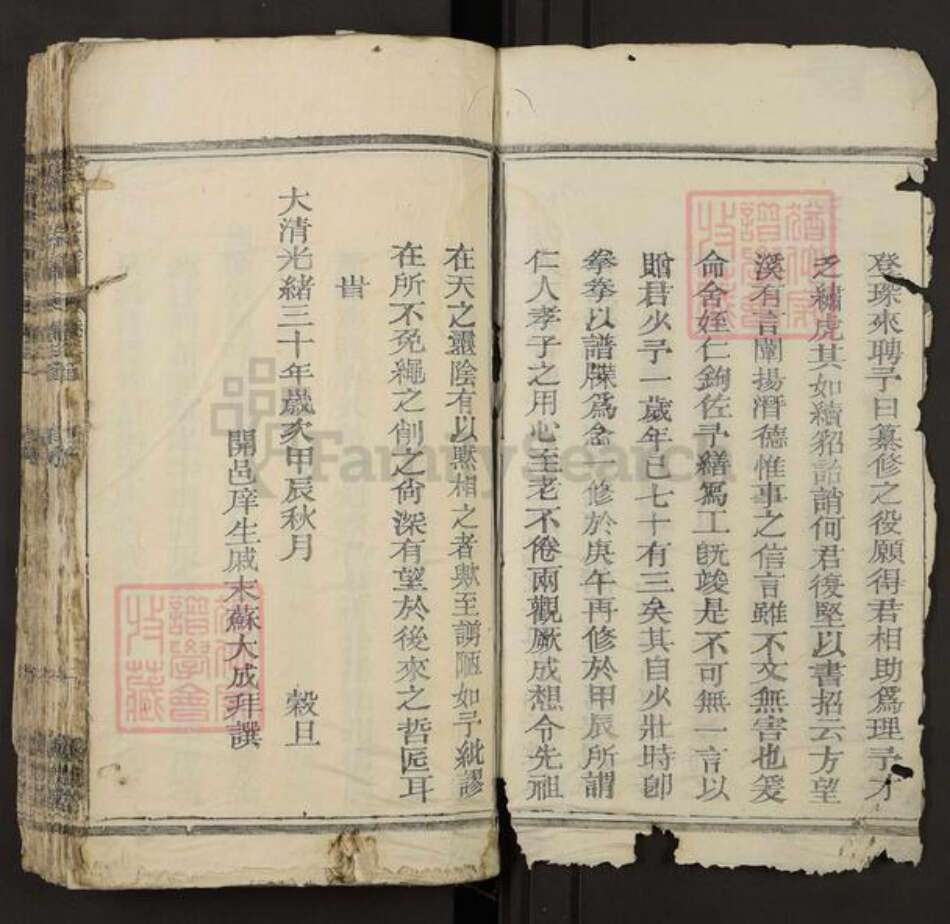 登琛來聘予曰纂修之役願得君相助爲理予才
乏繡虎其如續貂詒誚何君復堅以書招云方望
溪有言闡揚潛德惟事之信言雖不文無害也爰
命舍姪仁鉤佐予繕寫工既竣是不可無一言以
贈君少予一歲年已七十有三矣其自少壯時即
拳拳以譜牒爲念一修於庚午再修於甲辰所謂
仁人孝子之用心至老不倦兩觀厥成想令先祖
在天之靈陰有以默相之者歟至謭陋如予紕謬
在所不免繩之削之尙深有望於後來之哲匠耳
旹
大清光緒三十年歲次甲辰秋月 穀旦
開邑庠生戚末蘇大成拜譔
譜學會
收藏
譜學會
收藏
FamilySearch